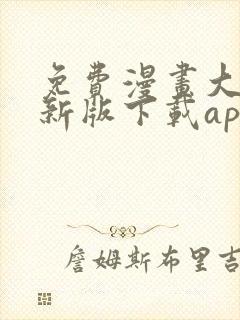 免費漫畫大
新版下載ap
詹姆斯布里吉